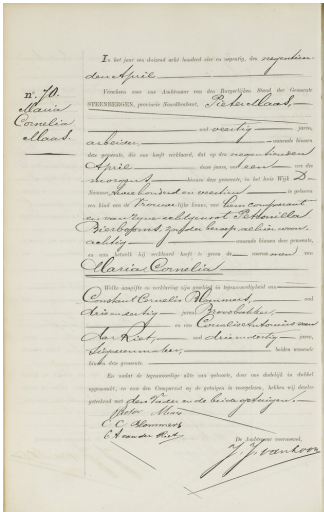 In het jaar een duizend acht honderd vier en negentig, den negentien-
den April
nº. 70.
Maria
Cornelia
Maas.
Verscheen voor ons Ambtenaar van den Burgerlijken Stand der Gemeente
STEENBERGEN, provincie Noordbrabant, Pieter Maas,
oud veertig jaren,
arbeider, wonende binnen
deze gemeente, die ons heeft verklaard, dat op den negentienden
April dezes jaars, ten een ure des
morgens binnen deze gemeente, in het huis Wijk D
Nummer twee honderd en veertien is geboren
een kind van de Vrouwelijke kunne, van hem comparant
en van zijne echtgenoot Petronilla
zonder beroep, alhier woon-
achtig, wonende binnen deze gemeente,
en aan hetwelk hij verklaard heeft te geven de voornamen van
Maria Cornelia
Welke aangifte en verklaring zijn geschied in tegenwoordigheid van
Constant Cornelis Blommers, oud
drieendertig jaren, Broodbakker,
en van Cornelis Antonius van
der Riet, oud drieendertig jaren,
beiden wonende
binnen deze gemeente.
En nadat de tegenwoordige akte van geboorte, door ons dadelijk in dubbel
opgemaakt, en aan den Comparant en de getuigen is voorgelezen, hebben wij dezelve
geteekend met den Vader en de beide getuigen.
Pieter Maas
C. C. Blommers
C A van der Riet
De Ambtenaar voornoemd,